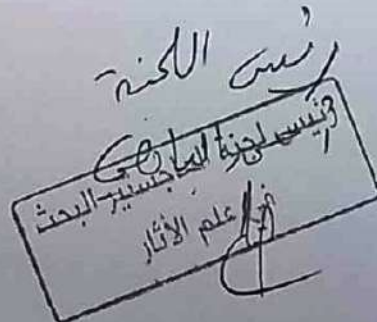 رئيس اللجنة
رئيس لجنة الماجستير البحث
في علم الأثار